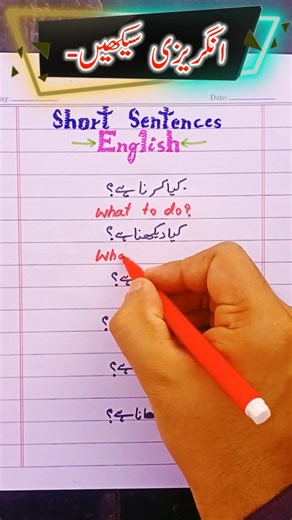 انگریزی سیکھیں-
ay:
Date:
Short Sentences
English
کیا کرنا ہے؟
What to do?
کیا دیکھنا ہے؟
Wha
ہے؟
؟
ہے؟
انا ہے؟